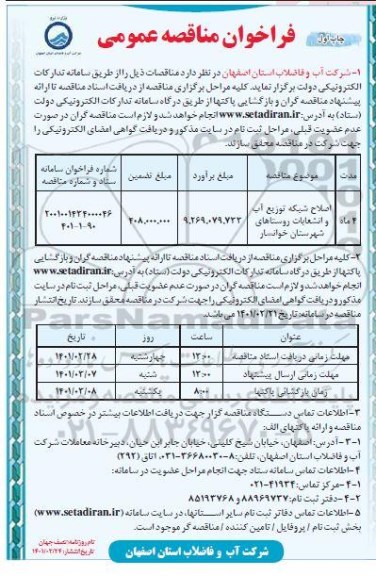 وزارت نیرو
شرکت آب و فاضلاب استان اصفهان
فراخوان مناقصه عمومی
چاپ اول
۱- شرکت آب و فاضلاب استان اصفهان در نظر دارد مناقصات ذیل را از طریق سامانه تدارکات
الکترونیکی دولت برگزار نماید. کلیه مراحل برگزاری مناقصه از دریافت اسناد مناقصه تا ارائه
پیشنهاد مناقصه گران و بازگشایی پاکتها از طریق درگاه سامانه تدارکات الکترونیکی دولت
(ستاد) به آدرس: www.setadiran.ir انجام خواهد شد و لازم است مناقصه گران در صورت
عدم عضویت قبلی، مراحل ثبت نام در سایت مذکور و دریافت گواهی امضای الکترونیکی را
جهت شرکت در مناقصه محقق سازند.
مدت موضوع مناقصه مبلغ برآورد مبلغ تضمین شماره فراخوان سامانه ستاد و شماره مناقصه
۴ماه اصلاح شبکه توزیع آب و انشعابات روستاهای شهرستان خوانسار ۹,۲۶۹,۰۷۹,۷۲۲ ۴۰۸,۰۰۰,۰۰۰ ۲۰۰۱۰۰۱۴۳۴۰۰۰۰۴۶ ۴۰۱-۱-۹۰
۲-کلیه مراحل برگزاری مناقصه از دریافت اسناد مناقصه تا ارائه پیشنهاد مناقصه گران و بازگشایی
پاکتها از طریق درگاه سامانه تدارکات الکترونیکی دولت (ستاد) به آدرس: www.setadiran.ir
انجام خواهد شد و لازم است مناقصه گران در صورت عدم عضویت قبلی، مراحل ثبت نام در سایت
مذکور و دریافت گواهی امضای الکترونیکی را جهت شرکت در مناقصه محقق سازند. تاریخ انتشار
مناقصه در سامانه: تاریخ ۱۴۰۱/۰۲/۲۱ می باشد.
عنوان ساعت روز تاریخ
مهلت زمانی دریافت اسناد مناقصه ۱۳:۰۰ چهارشنبه ۱۴۰۱/۰۲/۲۸
مهلت زمانی ارسال پیشنهاد ۱۳:۰۰ شنبه ۱۴۰۱/۰۳/۰۷
زمان بازگشائی پاکتها ۸:۰۰ یکشنبه ۱۴۰۱/۰۳/۰۸
۳-اطلاعات تماس دستگاه مناقصه گزار جهت دریافت اطلاعات بیشتر در خصوص اسناد
مناقصه و ارائه پاکتهای الف:
۳-۱-آدرس: اصفهان، خیابان شیخ کلینی، خیابان جابر ابن حیان، دبیرخانه معاملات شرکت
آب و فاضلاب استان اصفهان، تلفن: ۸-۰۳۱-۳۶۶۸۰۰۳۰، اتاق (۲۹۲)
۴-اطلاعات تماس سامانه ستاد جهت انجام مراحل عضویت در سامانه:
۴-۱-مرکز تماس: ۰۲۱-۴۱۹۳۴
۴-۲-دفتر ثبت نام: ۸۸۹۶۹۷۳۷ و ۸۵۱۹۳۷۶۸
۵-اطلاعات تماس دفاتر ثبت نام سایر استانها، در سایت سامانه (www.setadiran.ir)
بخش ثبت نام / پروفایل / تامین کننده / مناقصه گر موجود است.
شرکت آب و فاضلاب استان اصفهان
نام روزنامه: نصف جهان
تاریخ انتشار: ۱۴۰۱/۰۲/۲۴